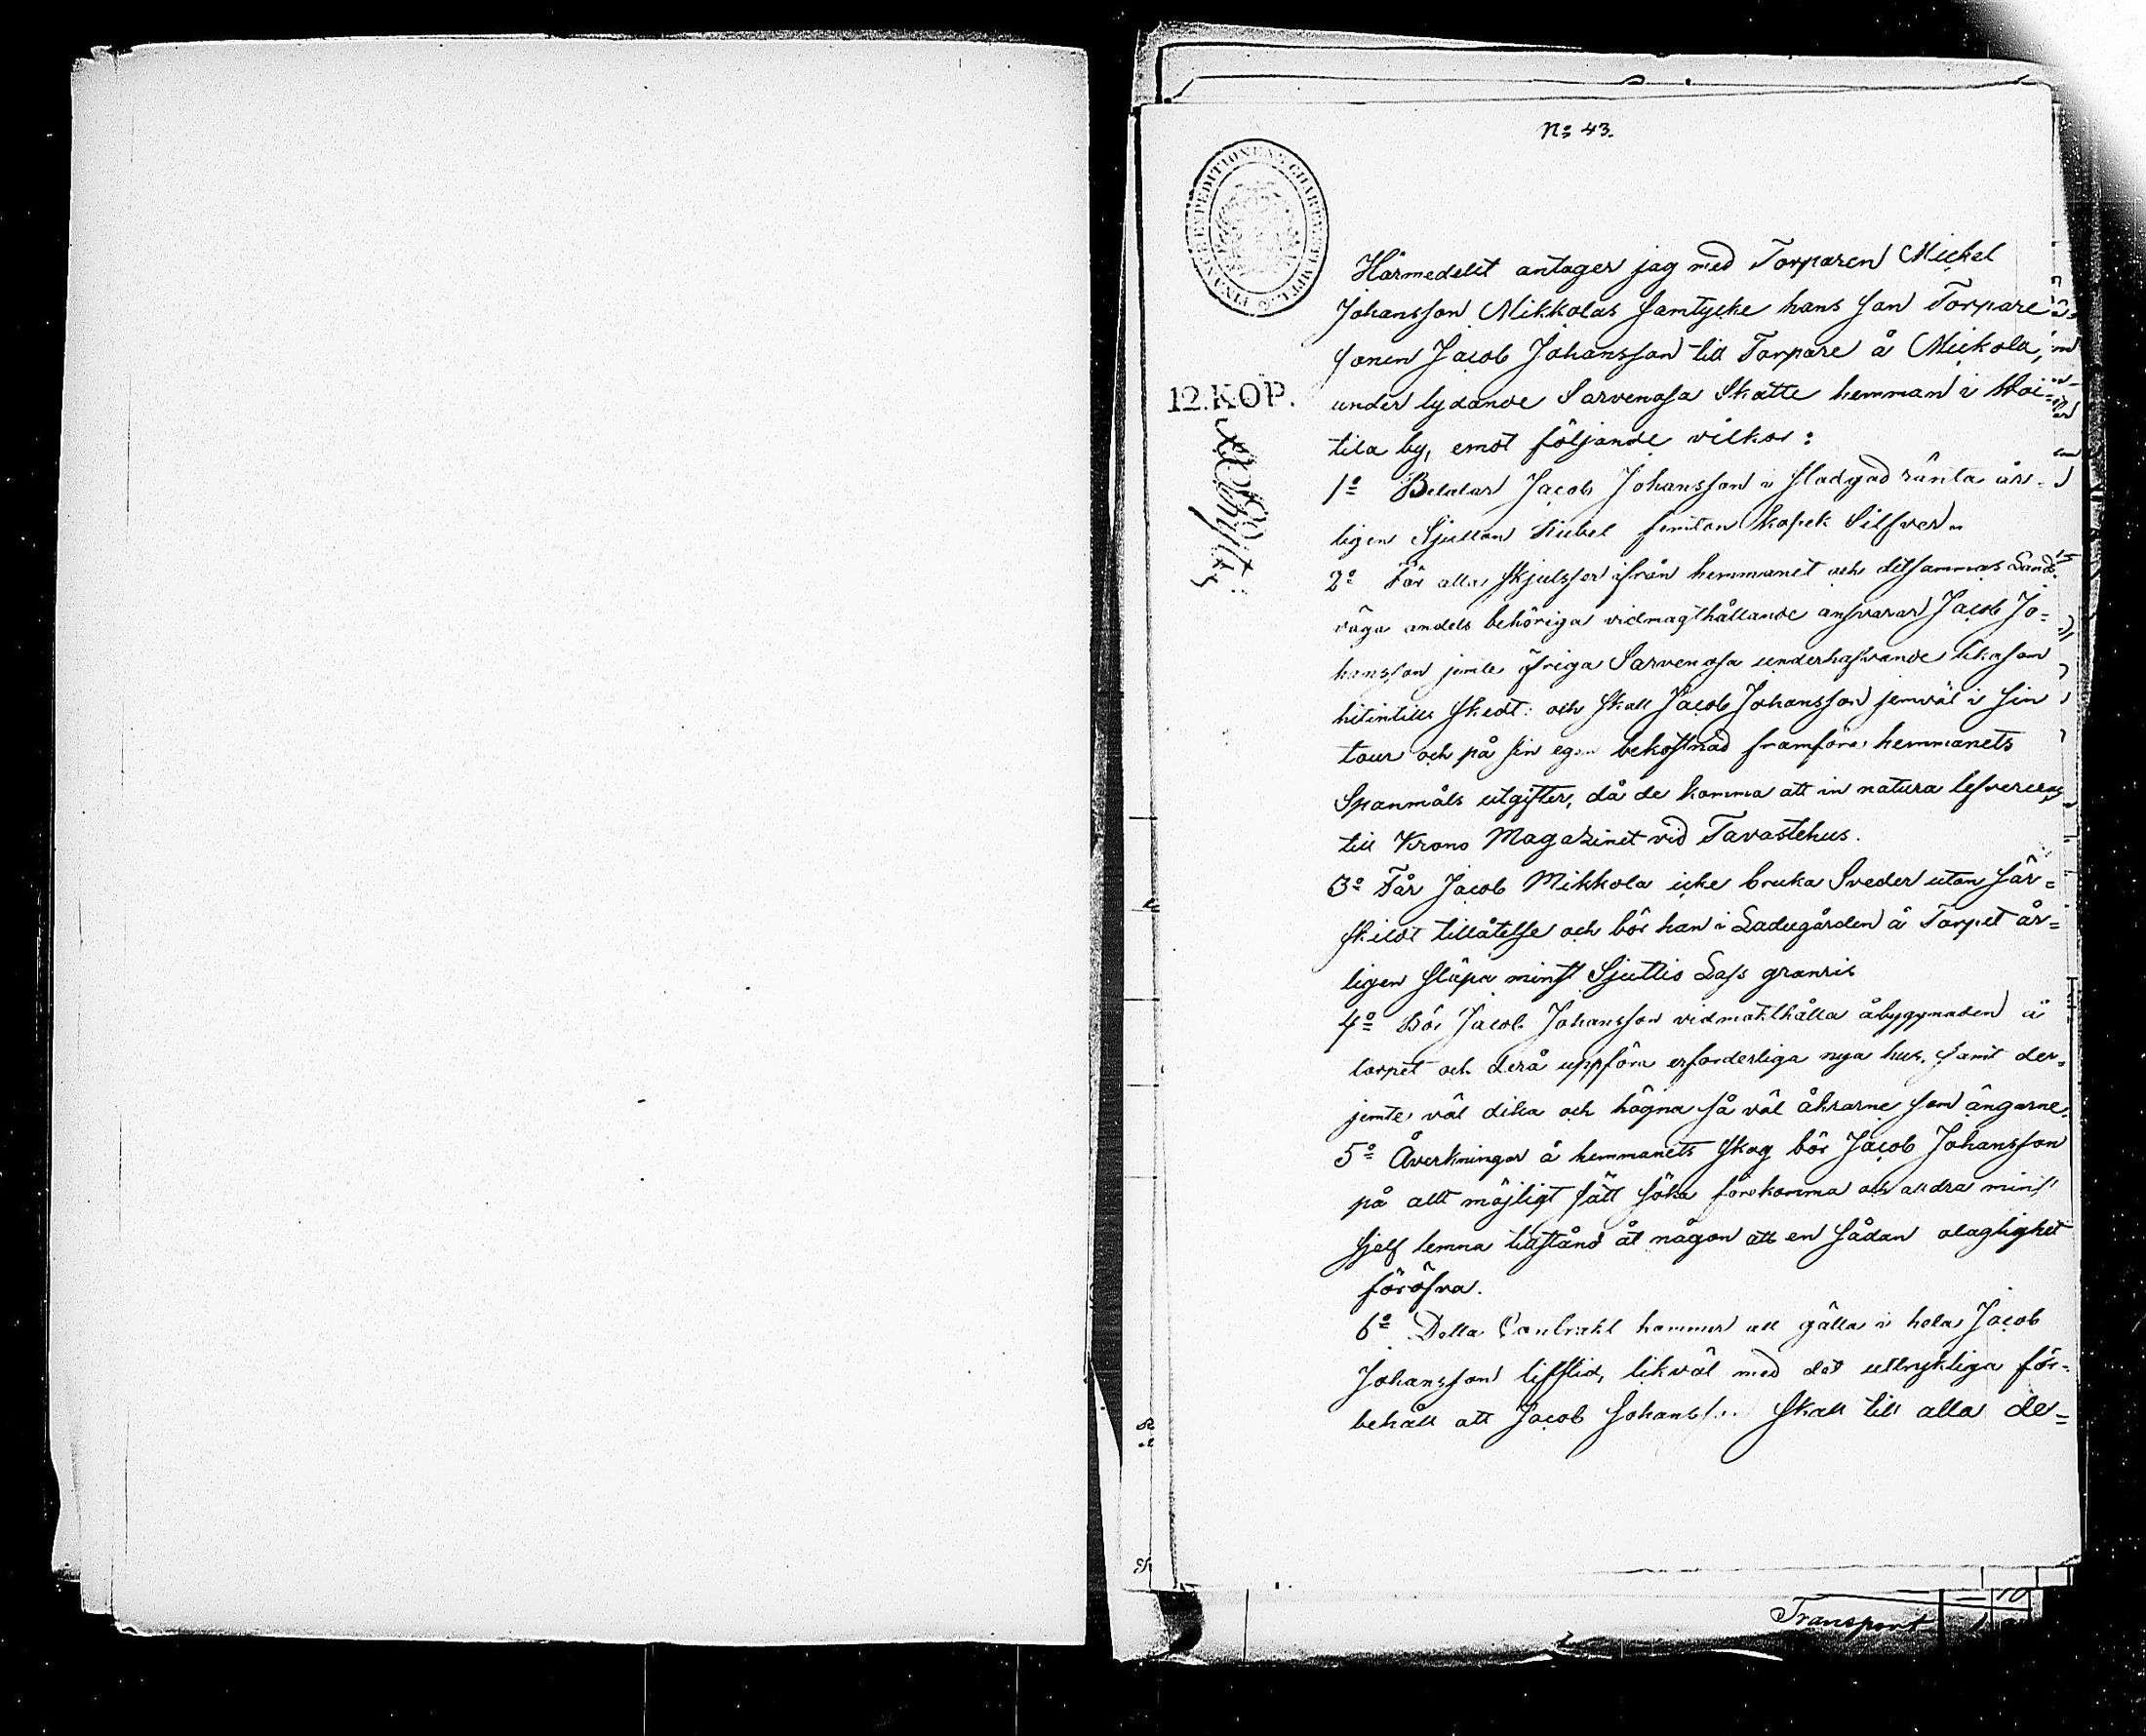 No 43.
FINANCE EXPEDITIONENS CHARTÆ
12. KOP.
Härmedelst antager jag med Torparen Michel
Johansson Mikkolas samtycke hans son Torpare
sonen Jacob Johansson till Torpare å Mickola,
under lydande Sarvenoja Skatte hemman i
tila by, emot följande vilkor:
1o Betalar Jacob Johansson i stadgad ränta år-
ligen Sjutton Rubel femton kopek Silfver.
2o För alla skjutsser ifrån hemmanet och detsammas Land-
väga andels behöriga vidmagthållande ansvarar Jacob Jo-
hansson jemte öfriga Sarvenoja underhafvande likasom
hitintills skedt: och skall Jacob Johansson jemväl i sin
tour och på sin egen bekostnad framföra hemmanets
Spanmåls utgifter, då de komma att in natura lefvereras
till Krono Magazinet vid Tavastehus.
3o Får Jacob Mikkola icke bruka Sveder utan sär=
skildt tillåtelse och bör han i Ladugården å Torpet år=
ligen släpa minst Sjuttio Lass granris
4o Bör Jacob Johansson vidmakthålla åbyggnaden å
torpet och derå uppföra erforderliga nya hus, samt der-
jemte väl dika och hägna så väl åkrarne som ängarne.
5o Åverkningar å hemmanets skog bör Jacob Johansson
på allt möjligt sätt söka förekomma och alldra minst
sjelf lemna tillstånd åt någon att en sådan olaglighet
föröfva.
6o Detta Contrakt kommer att gälla i hela Jacob
Johansson lifstid, likväl med det uttrykliga för-
behåll att Jacob Johansson skall till alla de=
Transport
10